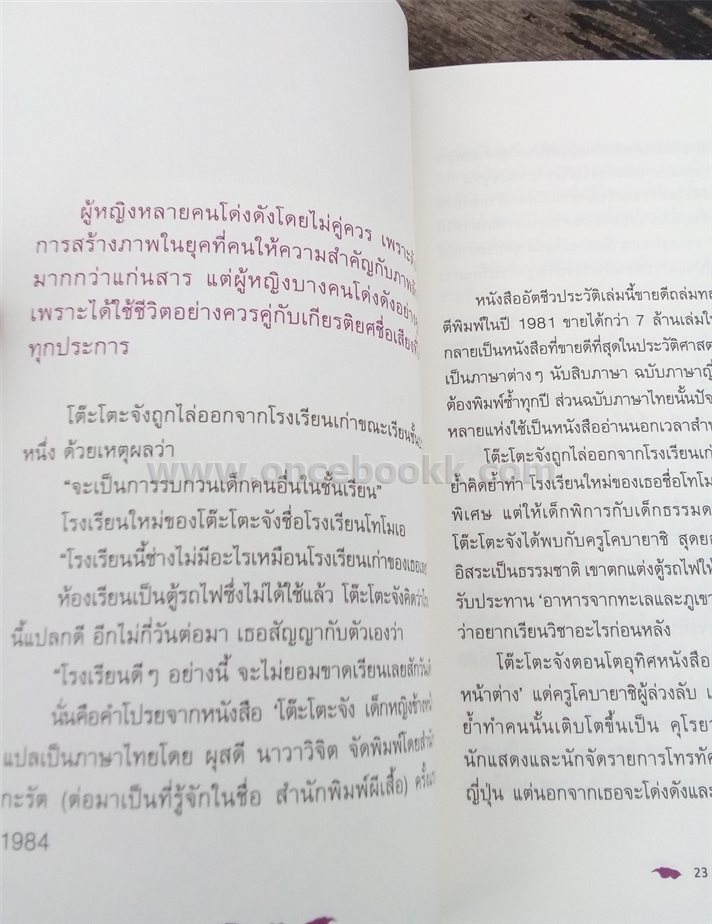 ผู้หญิงหลายคนโด่งดังโดยไม่คู่ควร เพราะ
การสร้างภาพในยุคที่คนให้ความสำคัญกับ
มากกว่าแก่นสาร แต่ผู้หญิงบางคนโด่งดัง
เพราะได้ใช้ชีวิตอย่างควรคู่กับเกียรติยศชื่อเสียง
ทุกประการ
โต๊ะโตะจังถูกไล่ออกจากโรงเรียนเก่าขณะเรียน
หนึ่ง ด้วยเหตุผลว่า
"จะเป็นการรบกวนเด็กคนอื่นในชั้นเรียน"
โรงเรียนใหม่ของโต๊ะโตะจังชื่อโรงเรียนโทโมเอ
"โรงเรียนนี้ช่างไม่มีอะไรเหมือนโรงเรียนเก่าของ
ห้องเรียนเป็นตู้รถไฟซึ่งไม่ได้ใช้แล้ว โต๊ะโตะจังคิดว่า
นี้แปลกดี อีกไม่กี่วันต่อมา เธอสัญญากับตัวเองว่า
"โรงเรียนดีๆ อย่างนี้ จะไม่ยอมขาดเรียนเลยสักวัน
นั่นคือคำโปรยจากหนังสือ 'โต๊ะโตะจัง เด็กหญิงข้าง
แปลเป็นภาษาไทยโดย ผุสดี นาวาวิจิต จัดพิมพ์โดย
กะรัต (ต่อมาเป็นที่รู้จักในชื่อ สำนักพิมพ์ผีเสื้อ) ครั้ง
1984
หนังสืออัตชีวประวัติเล่มนี้ขายดีถล่ม
ตีพิมพ์ในปี 1981 ขายได้กว่า 7 ล้านเล่ม
กลายเป็นหนังสือที่ขายดีที่สุดในประวัติศาสต
เป็นภาษาต่างๆ นับสิบภาษา ฉบับภาษาญี่
ต้องพิมพ์ซ้ำทุกปี ส่วนฉบับภาษาไทยนั้นปัจ
หลายแห่งใช้เป็นหนังสืออ่านนอกเวลาสำห
โต๊ะโตะจังถูกไล่ออกจากโรงเรียนเก่
ย้ำคิดย้ำทำ โรงเรียนใหม่ของเธอชื่อโทโม
พิเศษ แต่ให้เด็กพิการกับเด็กธรรมด
โต๊ะโตะจังได้พบกับครูโคบายาชิ สุดยอ
อิสระเป็นธรรมชาติ เขาตกแต่งตู้รถไฟให้
รับประทาน 'อาหารจากทะเลและภูเขา
ว่าอยากเรียนวิชาอะไรก่อนหลัง
โต๊ะโตะจังตอนโตอุทิศหนังสือ
หน้าต่าง' แด่ครูโคบายาชิผู้ล่วงลับ เ
ย้ำทำคนนั้นเติบโตขึ้นเป็น คุโรยา
นักแสดงและนักจัดรายการโทรทัศ
ญี่ปุ่น แต่นอกจากเธอจะโด่งดังและ
23
www.oncebookk.com